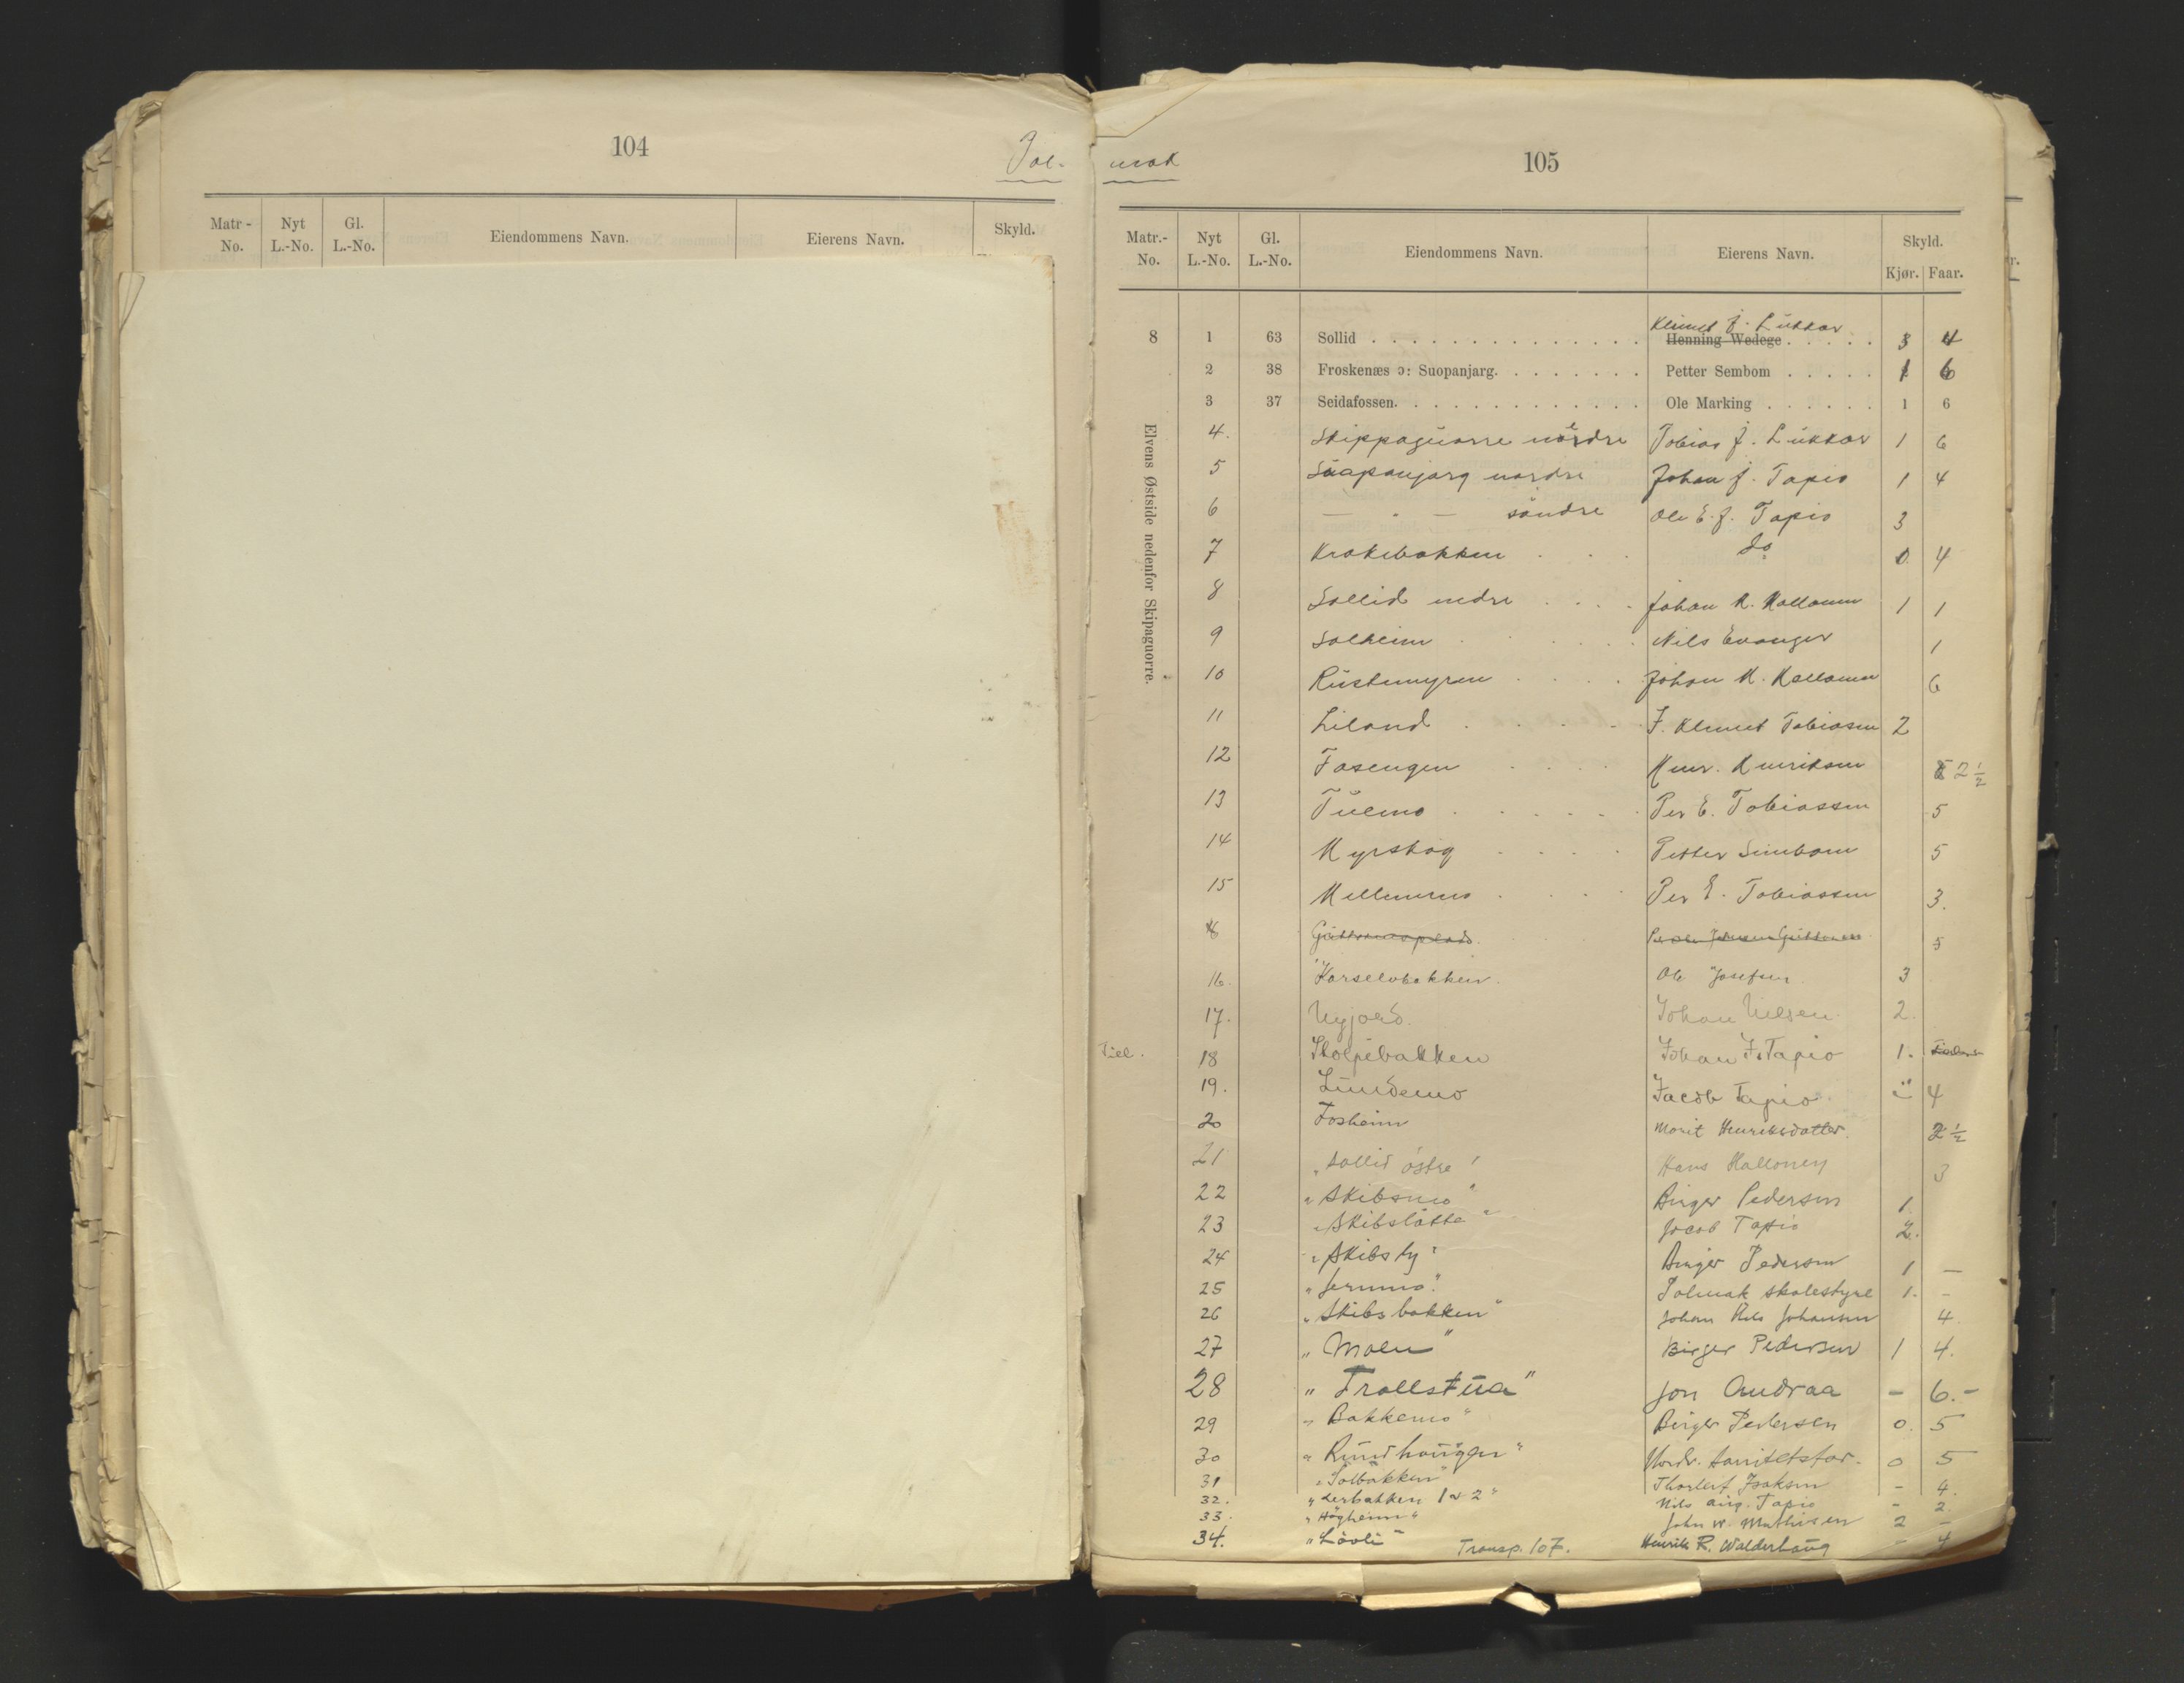 104
Pol-
Matr-No. Nyt L.-No. Gl. L.-No. Eiendommens Navn. Eierens Navn. Skyld.
mak
105
Matr.-No. Nyt L.-No. Gl. L.-No. Eiendommens Navn. Eierens Navn. Skyld. Kjør. Faar.
Elvens Østside nedenfor Skipaguorre.
Klemet J. Lukkar
8 1 63 Sollid Henning Wedege 3 4
2 38 Froskenæs ɔ: Suopanjarg. Petter Sembom 1 6
3 37 Seidafossen. Ole Marking 1 6
4. Skippaguorre nordre Tobias J. Lukkar 1 6
5 Suapanjarg nordre Johan J. Tapio 1 4
6 — " — søndre Ole E. J. Tapio 3
7 Krokebakken Do 0 4
8 Sollid nedre Johan K. Halonen 1 1
9 Solheim Nils Evanger 1
10 Rustemyren Johan K. 6
11 Liland J. Klemet Tobiasen 2
12 Fasengen Henr. Henriksen 2½
13 Tuemo Per E. Tobiassen 5
14 Myrskog Petter Sembom 5
15 Mellemmo Per E. Tobiassen 3.
5
16. "Karselvbakken Ole Josefsen 3
17. Nyjord. Johan Nilsen 2.
18 Stolpebakken Johan J. Tapio 1.
19. Lundemo Jacob Tapio " 4
20 Fosheim Marit Henriksdatter. 2½
21 "Sollid østre" Hans Hallonen 3
22 "Skibsmo" Birger Pedersen 1
23 "Skibslåtte" Jacob Tapio 2.
24 "Skibsly" Birger Pedersen 1 —
25 "Jernmo". Polmak skolestyre 1. -
26 "Skibsbakken" Johan Nils Johansen 4
27 "Moen" Birger Pedersen 1 4.
28 "Trollstua" Jon Andraa - 6.-
29 "Bakkemo" Birger Pedersen 0. 5
30 "Rundhaugen" Nordr. Sanitetsfor. 0 5
31 "Solbakken" Thorleif Isaksen - 4.
32. "Lerbakken 1 & 2" Nils Aug. Tapio - 2.
33. "Høgheim" John M. Mathisen 2 -
34. "Løvli" Transp. 107. Henrik R. Walderhaug - 4